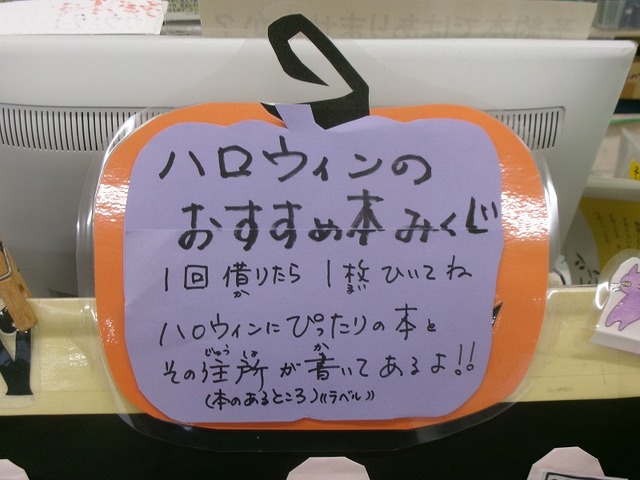 ハロウィンの
おすすめ本みくじ
1回 借りたら 1枚 ひいてね
ハロウィンにぴったりの本と
その住所が書いてあるよ!!
(本のあるところ)《ラベル》